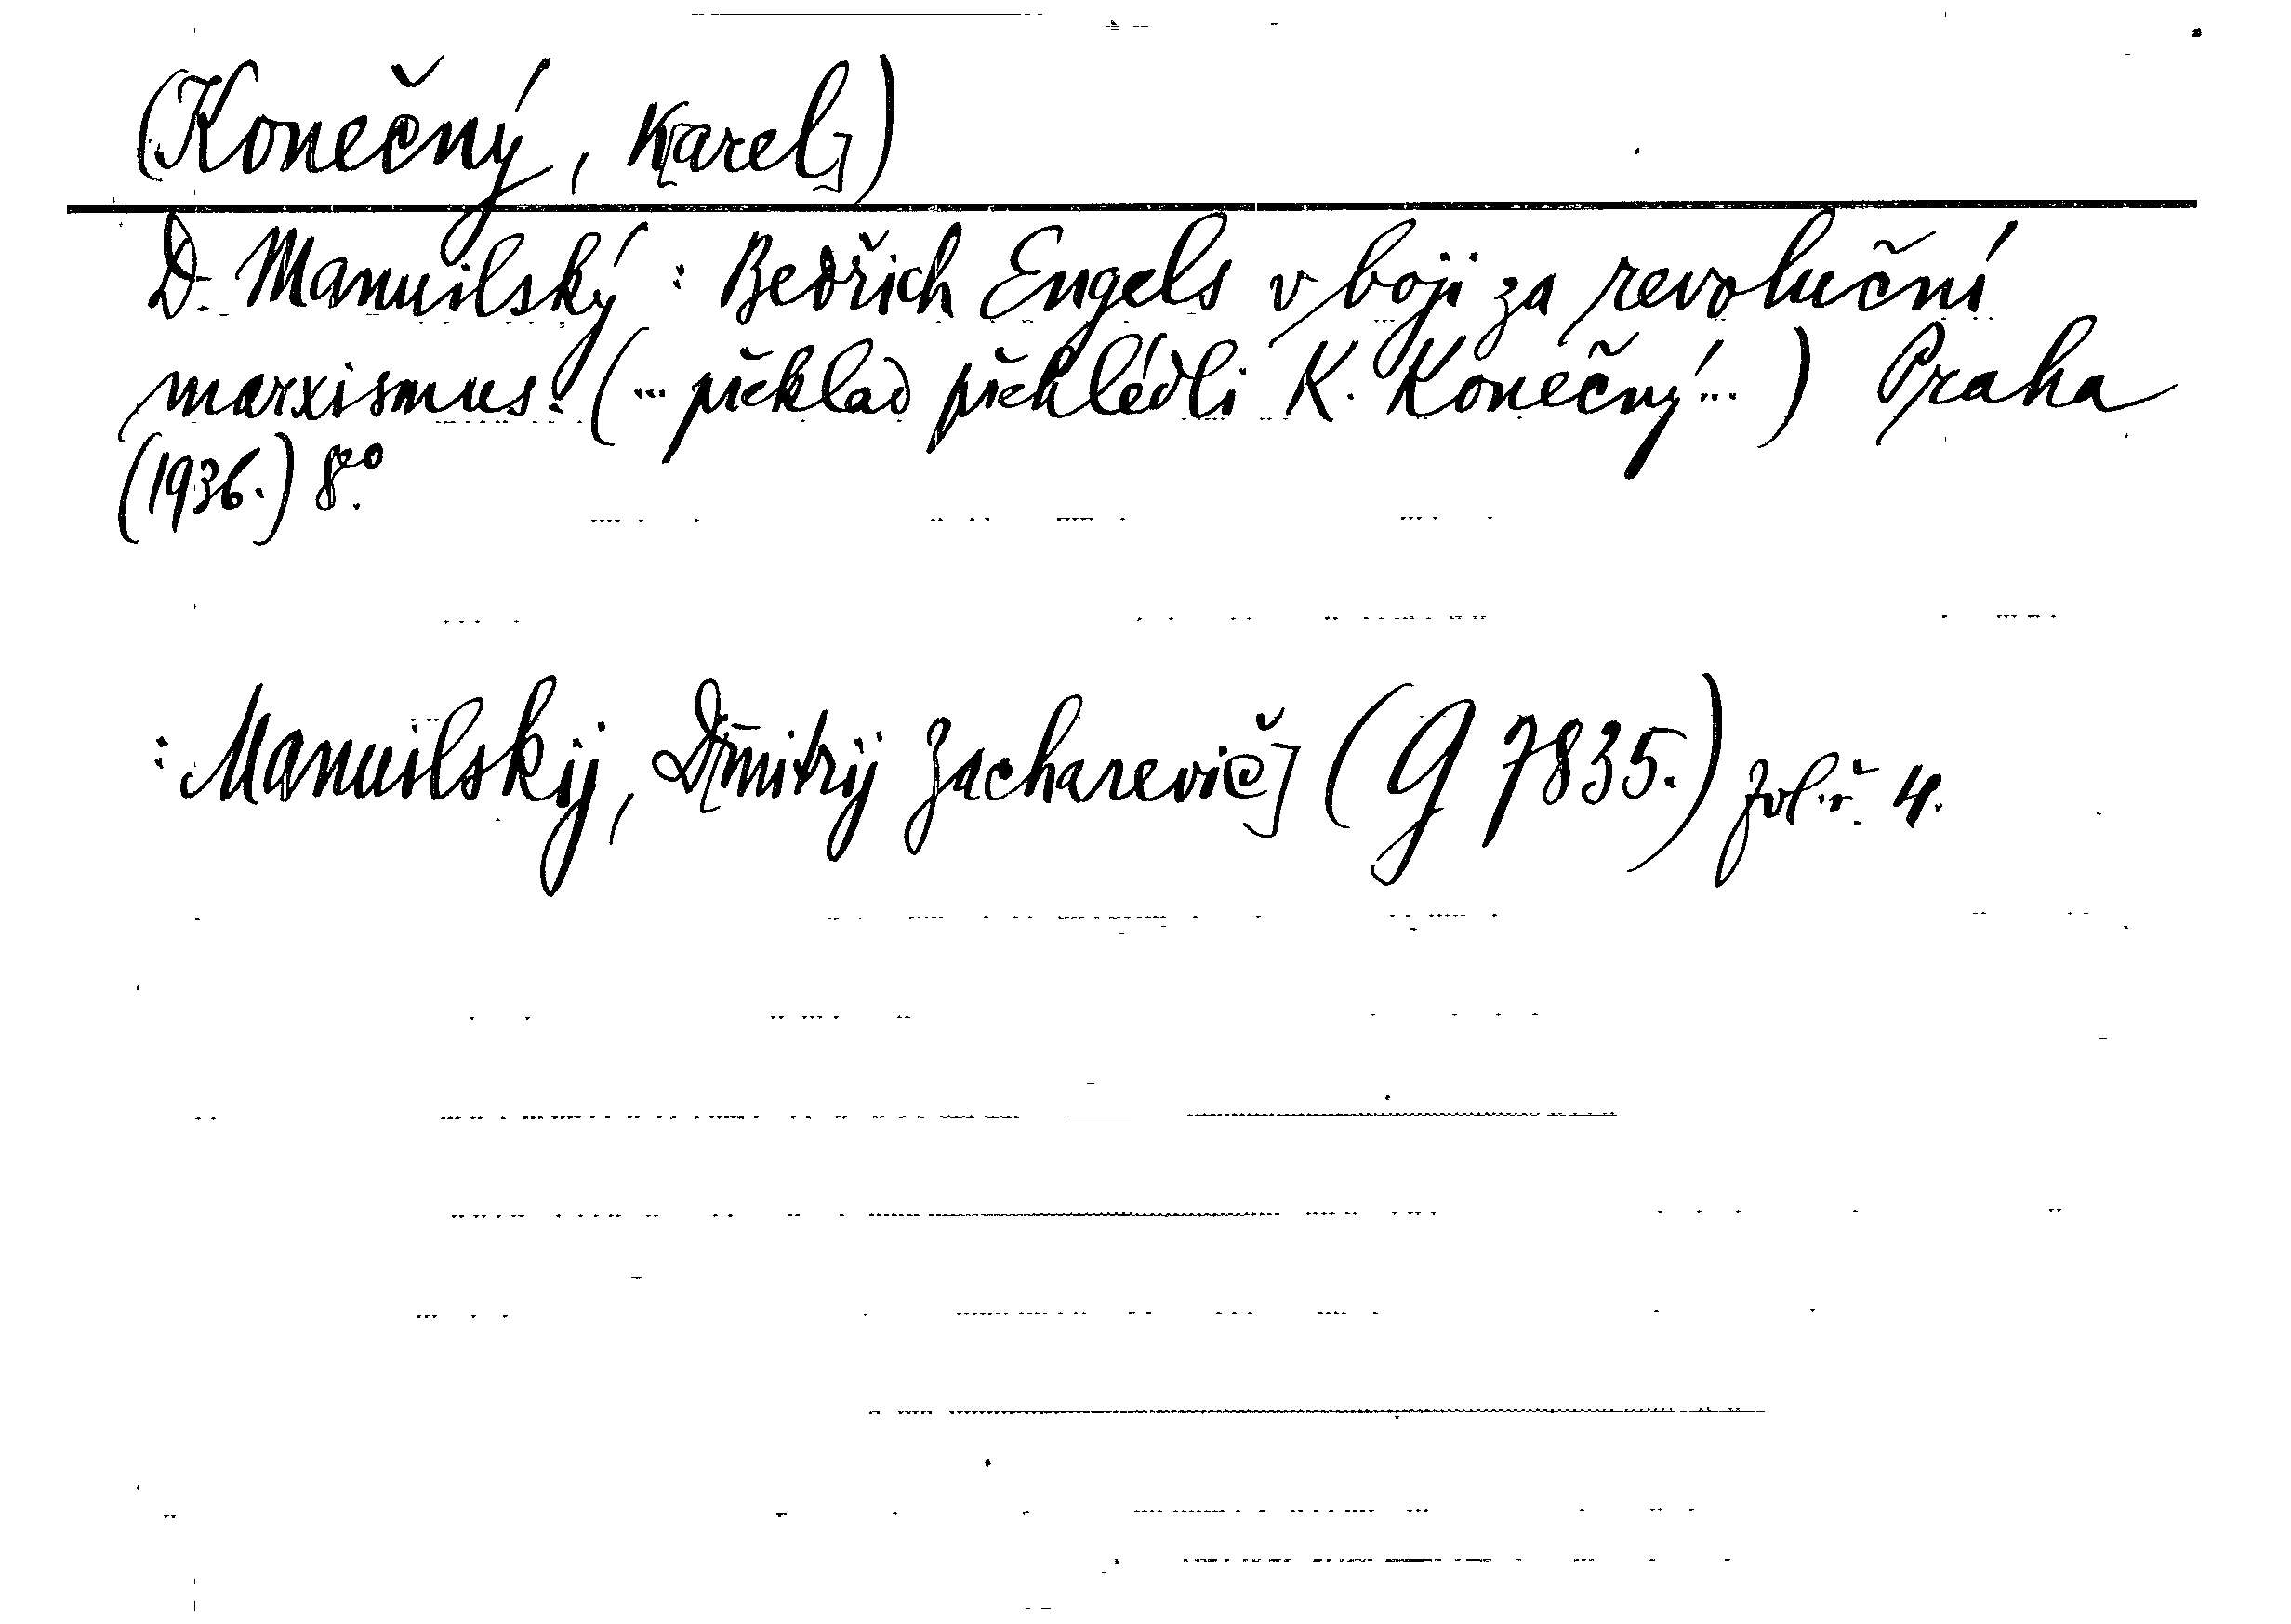 (Konečný, K[arel])
D. Manuilský : Bedřich Engels v boji za revoluční
marxismus. (... překlad přehlédli K. Konečný ...) Praha
(1936.) 8°.
: Manuilskij, D[mitrij Zacharevič] (G 7835.) zvl. ř. 4.